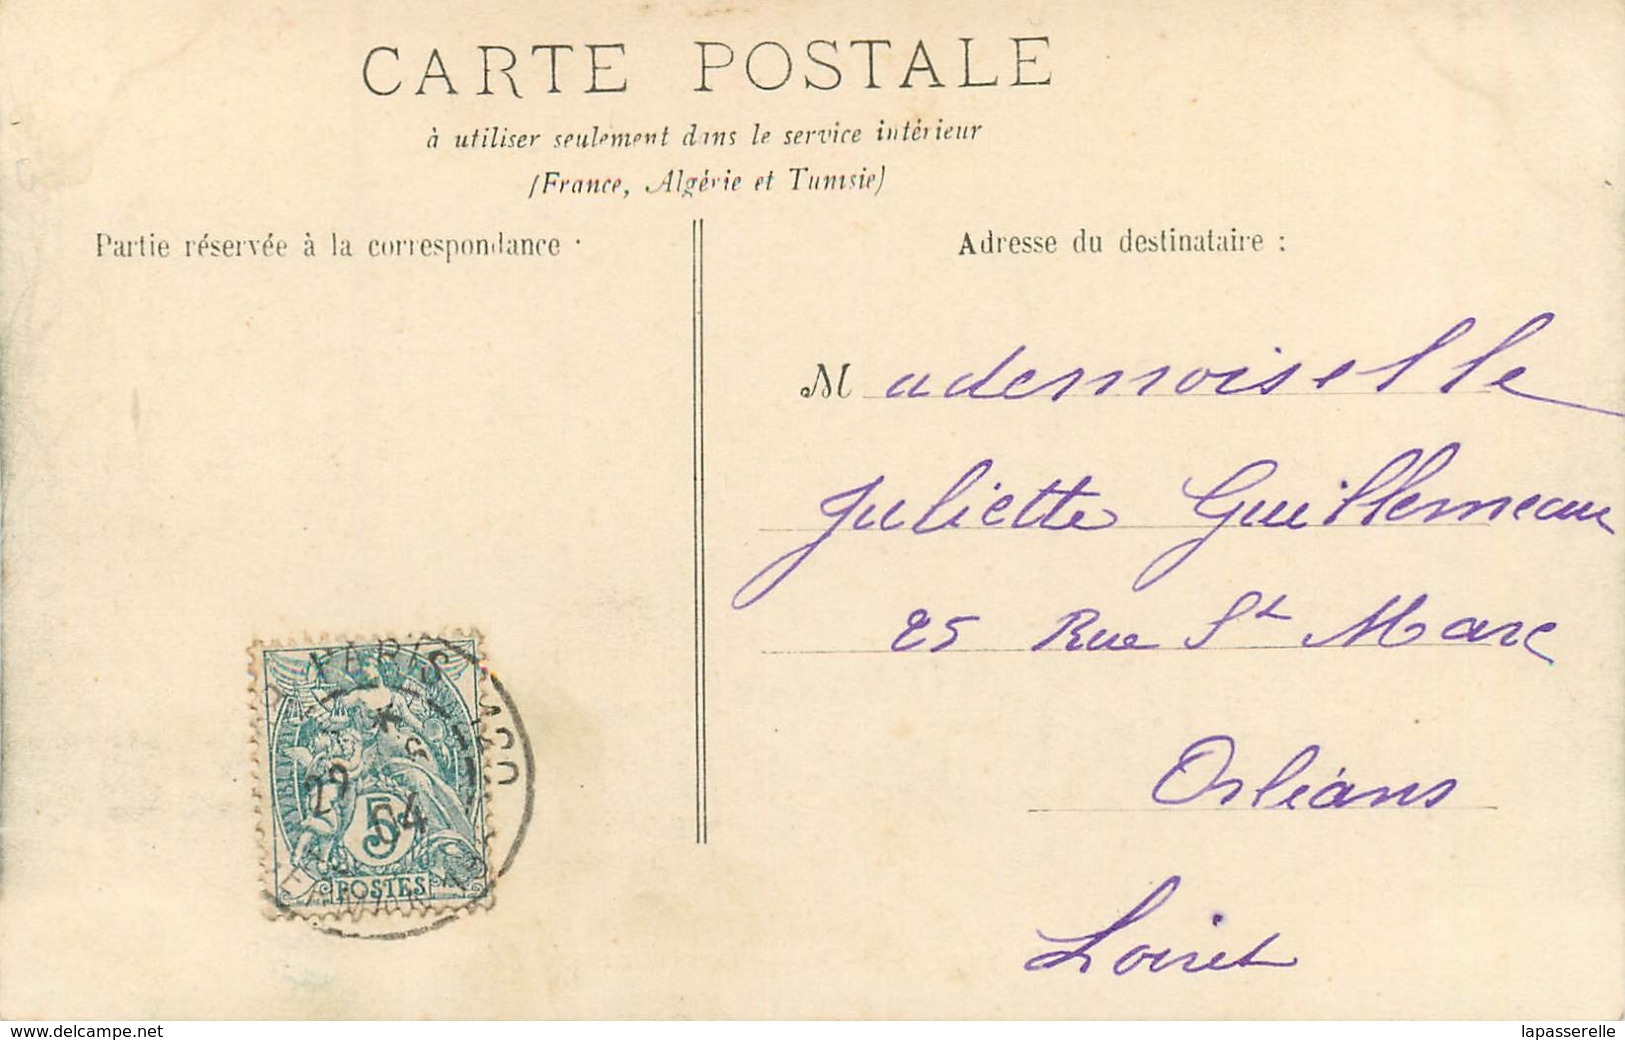 CARTE POSTALE
à utiliser seulement dans le service intérieur
(France, Algérie et Tunisie)
Partie réservée à la correspondance :
Adresse du destinataire :
Mademoiselle
Juliette Guillemeau
25 Rue St Marc
Orléans
Loiret
PARIS
29
04
5c
POSTES
www.delcampe.net
lapasserelle